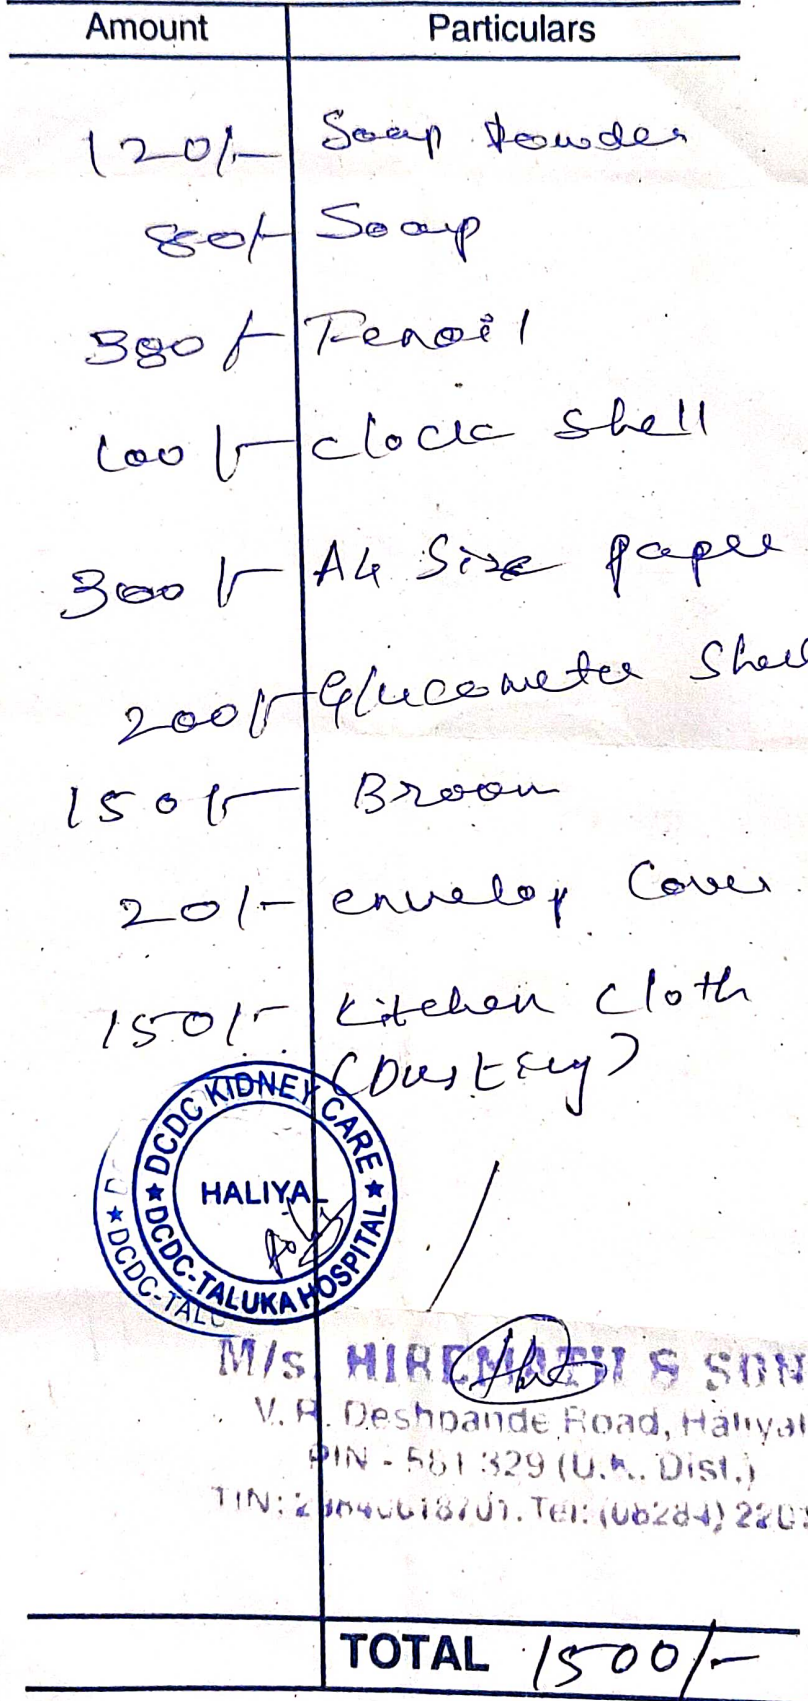 Amount Particulars
120/- Soap Powder
80/- Soap
380/- Fenoil
100/- clock shell
300/- A4 Size paper
200/- Glucometer Shell
150/- Broom
20/- envelop Cover
150/- Kitchen Cloth
(Dusting)
★ DCDC KIDNEY CARE ★
HALIYAL
DCDC-TALUKA HOSPITAL
★ DCDC-TALU
M/s. HIREMATH & SON
V. R. Deshpande Road, Haliyal
PIN - 581 329 (U.K. Dist.)
TIN: Tel: (08284) 220
TOTAL 1500/-